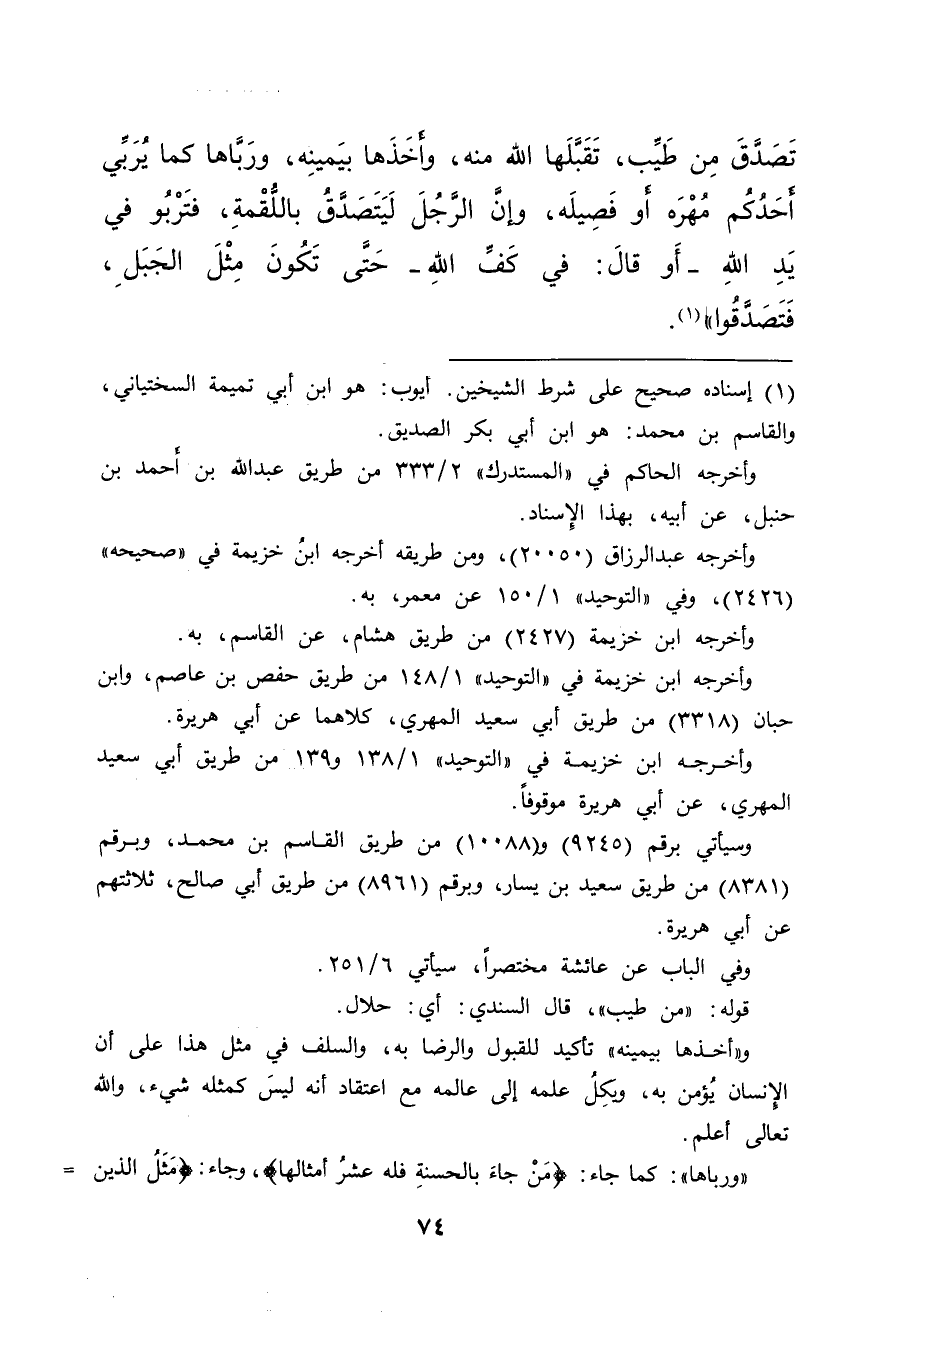 تَصَدَّقَ مِن طَيِّب، تَقَبَّلَها الله منه، وأَخَذَها بيَمينِه، ورَبَّاها كما يُرَبِّي
أَحَدُكُم مُهْرَه أَو فَصِيلَه، وإنَّ الرَّجُلَ لَيَتَصَدَّقُ باللُّقْمةِ، فتَرْبُو في
يَدِ اللهِ ـ أَو قالَ: في كَفِّ اللهِ ـ حَتَّى تَكُونَ مِثْلَ الجَبَلِ،
فَتَصَدَّقُوا»(١).
(١) إسناده صحيح على شرط الشيخين. أيوب: هو ابن أبي تميمة السختياني،
والقاسم بن محمد: هو ابن أبي بكر الصديق.
وأخرجه الحاكم في «المستدرك» ٣٣٣/٢ من طريق عبدالله بن أَحمد بن
حنبل، عن أبيه، بهذا الإِسناد.
وأخرجه عبدالرزاق (٢٠٠٥٠)، ومن طريقه أخرجه ابنُ خزيمة في «صحيحه»
(٢٤٢٦)، وفي «التوحيد» ١٥٠/١ عن معمر، به.
وأخرجه ابن خزيمة (٢٤٢٧) من طريق هشام، عن القاسم، به.
وأخرجه ابن خزيمة في «التوحيد» ١٤٨/١ من طريق حفص بن عاصم، وابن
حبان (٣٣١٨) من طريق أبي سعيد المهري، كلاهما عن أبي هريرة.
وأخرجه ابن خزيمة في «التوحيد» ١٣٨/١ و١٣٩ من طريق أبي سعيد
المهري، عن أبي هريرة موقوفاً.
وسيأتي برقم (٩٢٤٥) و(١٠٠٨٨) من طريق القاسم بن محمد، وبرقم
(٨٣٨١) من طريق سعيد بن يسار، وبرقم (٨٩٦١) من طريق أبي صالح، ثلاثتهم
عن أبي هريرة.
وفي الباب عن عائشة مختصراً، سيأتي ٢٥١/٦.
قوله: «من طيب»، قال السندي: أي: حلال.
و«أخذها بيمينه» تأكيد للقبول والرضا به، والسلف في مثل هذا على أن
الإِنسان يُؤمن به، ويكِلُ علمه إلى عالمه مع اعتقاد أنه ليسَ كمثله شيء، والله
تعالى أعلم.
«ورباها»: كما جاء: ﴿مَنْ جاءَ بالحسنةِ فله عشرُ أمثالها﴾، وجاء: ﴿مَثَلُ الذين =
٧٤